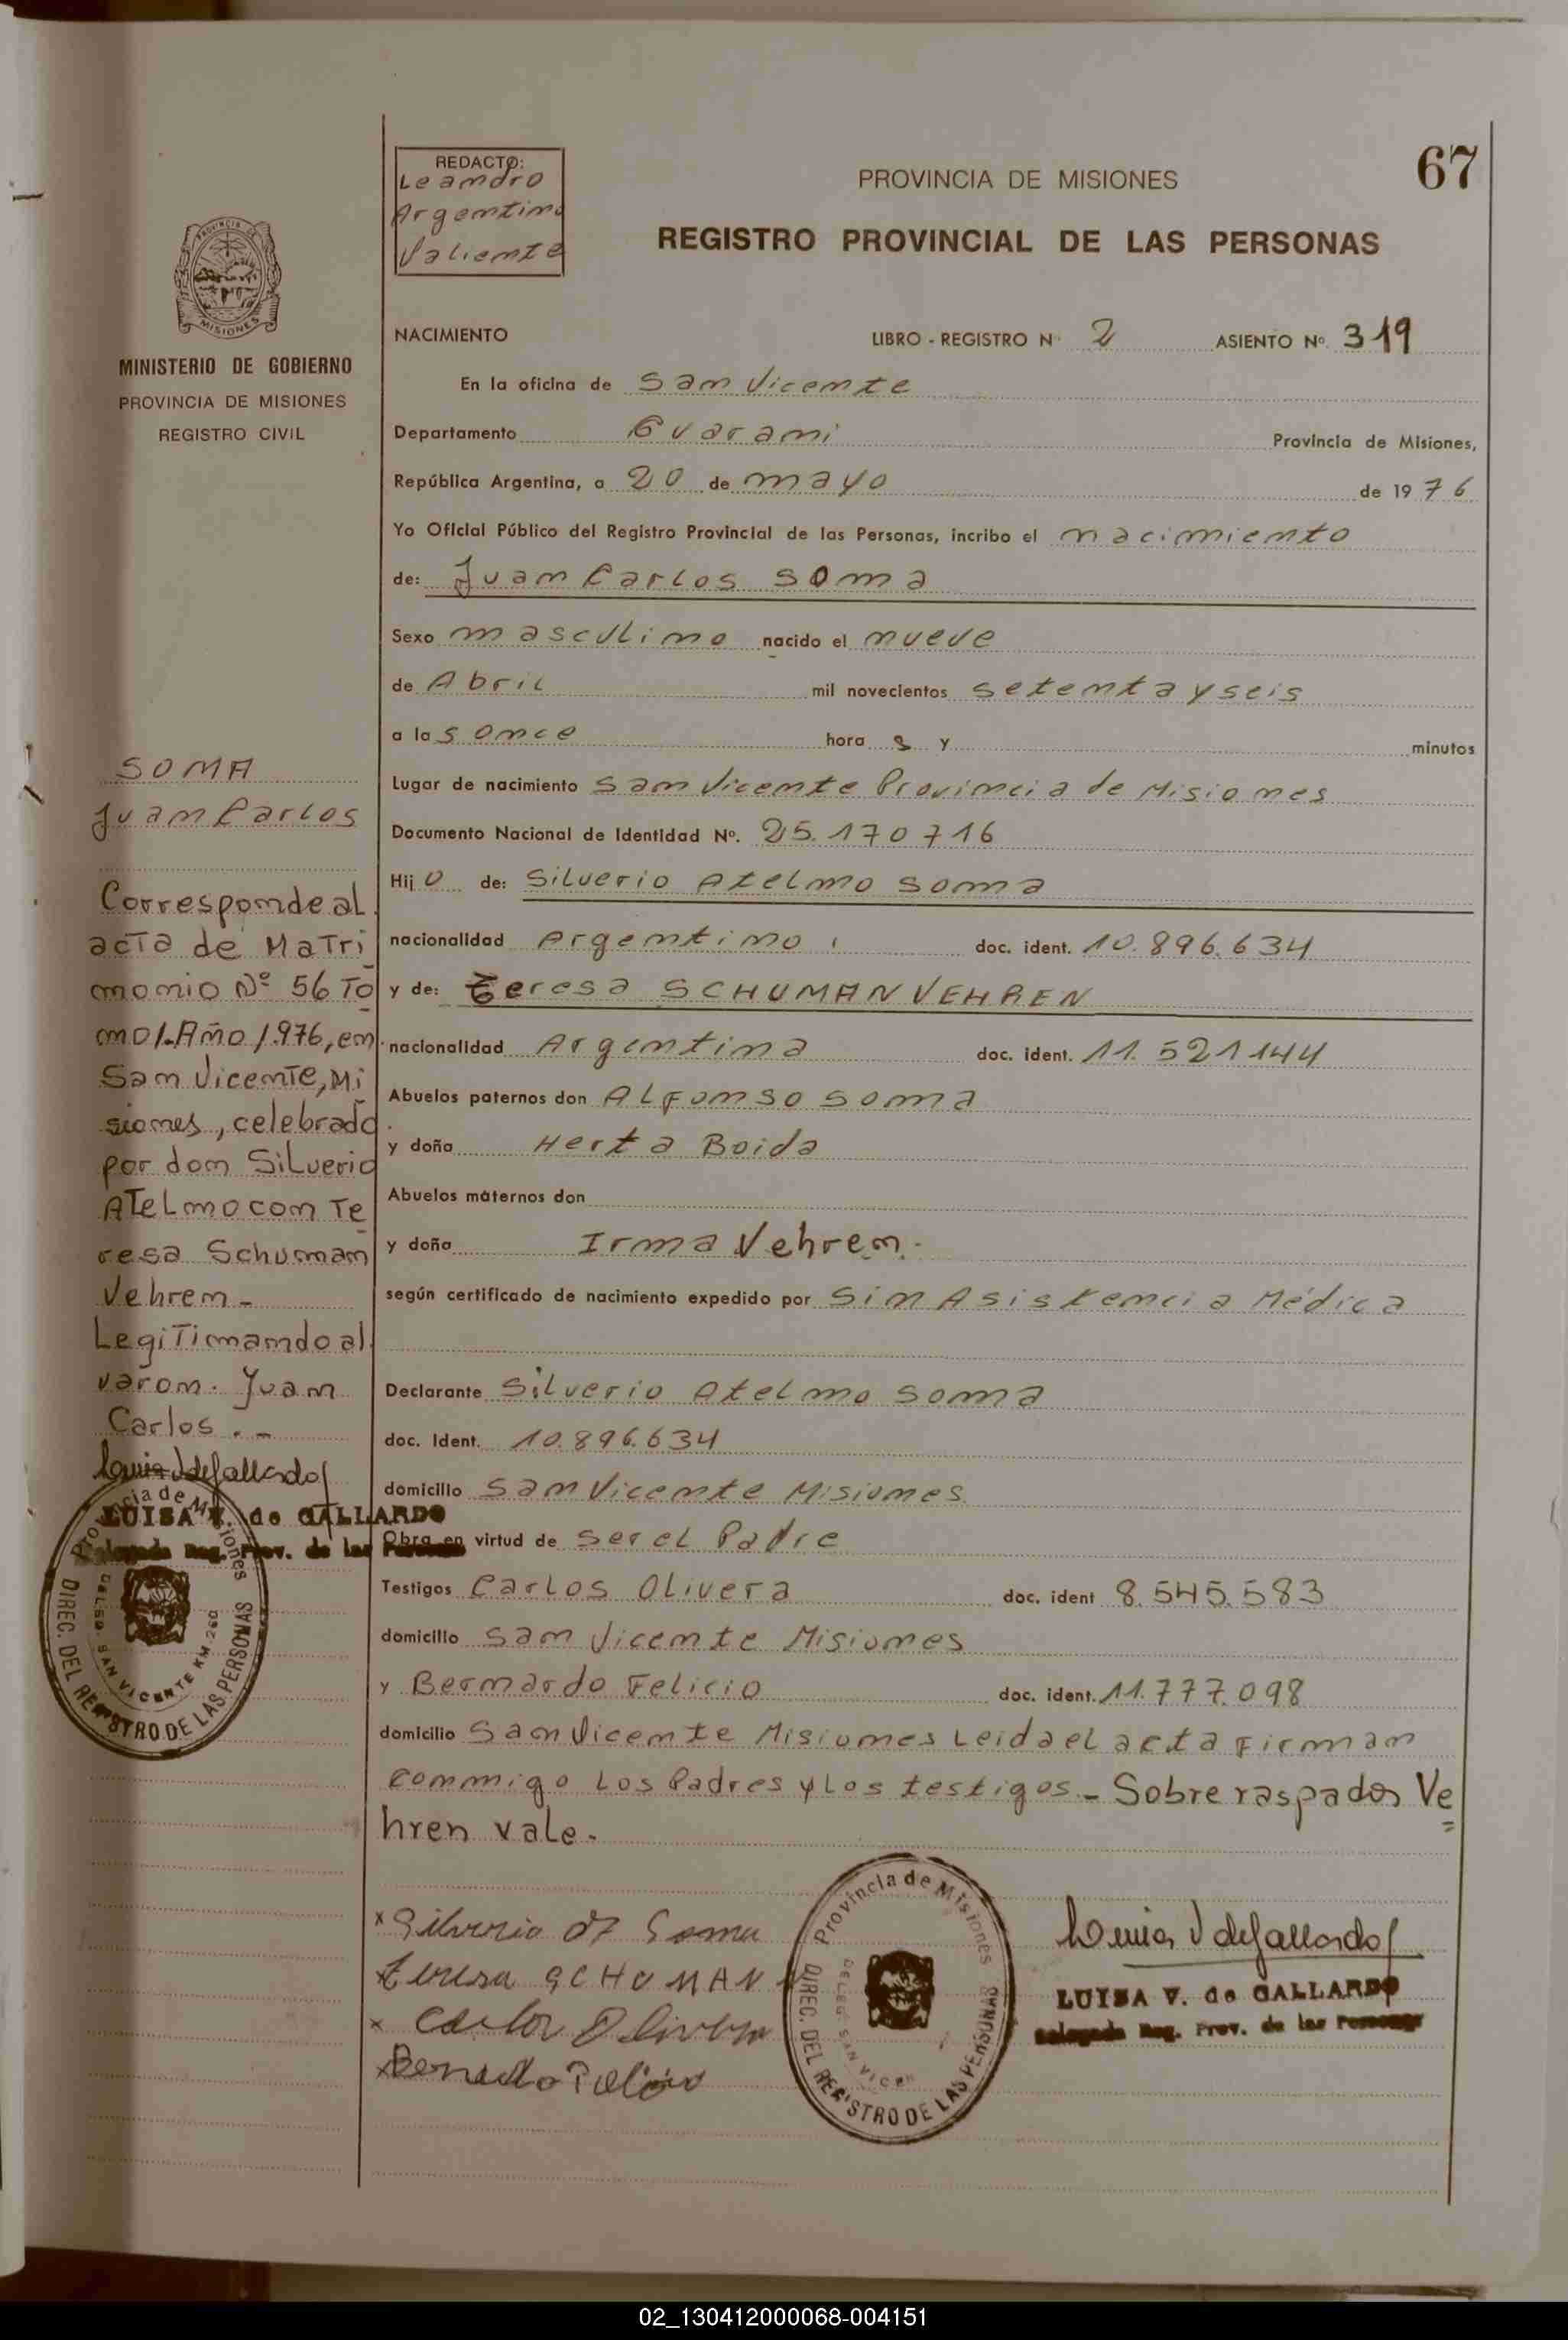 67
REDACTO:
Leandro
Argentino
Valiente
PROVINCIA DE MISIONES
REGISTRO PROVINCIAL DE LAS PERSONAS
PROVINCIA DE
MISIONES
MINISTERIO DE GOBIERNO
PROVINCIA DE MISIONES
REGISTRO CIVIL
NACIMIENTO LIBRO - REGISTRO N° 2 ASIENTO Nº. 319
En la oficina de San Vicente
Departamento Guarani Provincia de Misiones,
República Argentina, a 20 de mayo de 1976
Yo Oficial Público del Registro Provincial de las Personas, incribo el nacimiento
de: Juan Carlos Soma
Sexo masculino nacido el nueve
de Abril mil novecientos setenta y seis
a las once hora s y minutos
Lugar de nacimiento San Vicente Provincia de Misiones
Documento Nacional de Identidad Nº. 25.170716
Hijo de: Silverio Atelmo Soma
nacionalidad Argentino, doc. ident. 10.896.634
y de: Teresa SCHUMAN VEHREN
nacionalidad Argentina doc. ident. 11.521144
Abuelos paternos don Alfonso Soma
y doña Herta Boida
Abuelos maternos don
y doña Irma Vehren.-
según certificado de nacimiento expedido por Sin Asistencia Médica
Declarante Silverio Atelmo Soma
doc. Ident. 10.896.634
domicilio San Vicente Misiones
Obra en virtud de ser el Padre
Testigos Carlos Olivera doc. ident 8.545.583
domicilio San Vicente Misiones
y Bernardo Felicio doc. ident. 11.777.098
domicilio San Vicente Misiones Leida el acta Firman
conmigo Los Padres y Los testigos.- Sobre raspados Ve
hren vale.-
SOMA
Juan Carlos
Corresponde al
acta de Matri
monio Nº 56 To
mo 1.- Año 1.976, en
San Vicente, Mi
siones, celebrado
por don Silverio
Atelmo con Te
resa Schuman
Vehren -
Legitimando al
varon. Juan
Carlos . -
Luisa V de Gallardo
LUISA V. de GALLARDO
Delegada Reg. Prov. de las Personas
Provincia de Misiones
DIREC. DEL REGISTRO DE LAS PERSONAS
DELEG. SAN VICENTE KM 260
x Silverio At Soma
Teresa SCHUMAN
x Carlos Olivera
x Bernardo Felicio
Provincia de Misiones
DIREC. DEL REGISTRO DE LAS PERSONAS
DELEG. SAN VICEN
Luisa V de Gallardo
LUISA V. de GALLARDO
Delegada Reg. Prov. de las Personas
02_130412000068-004151